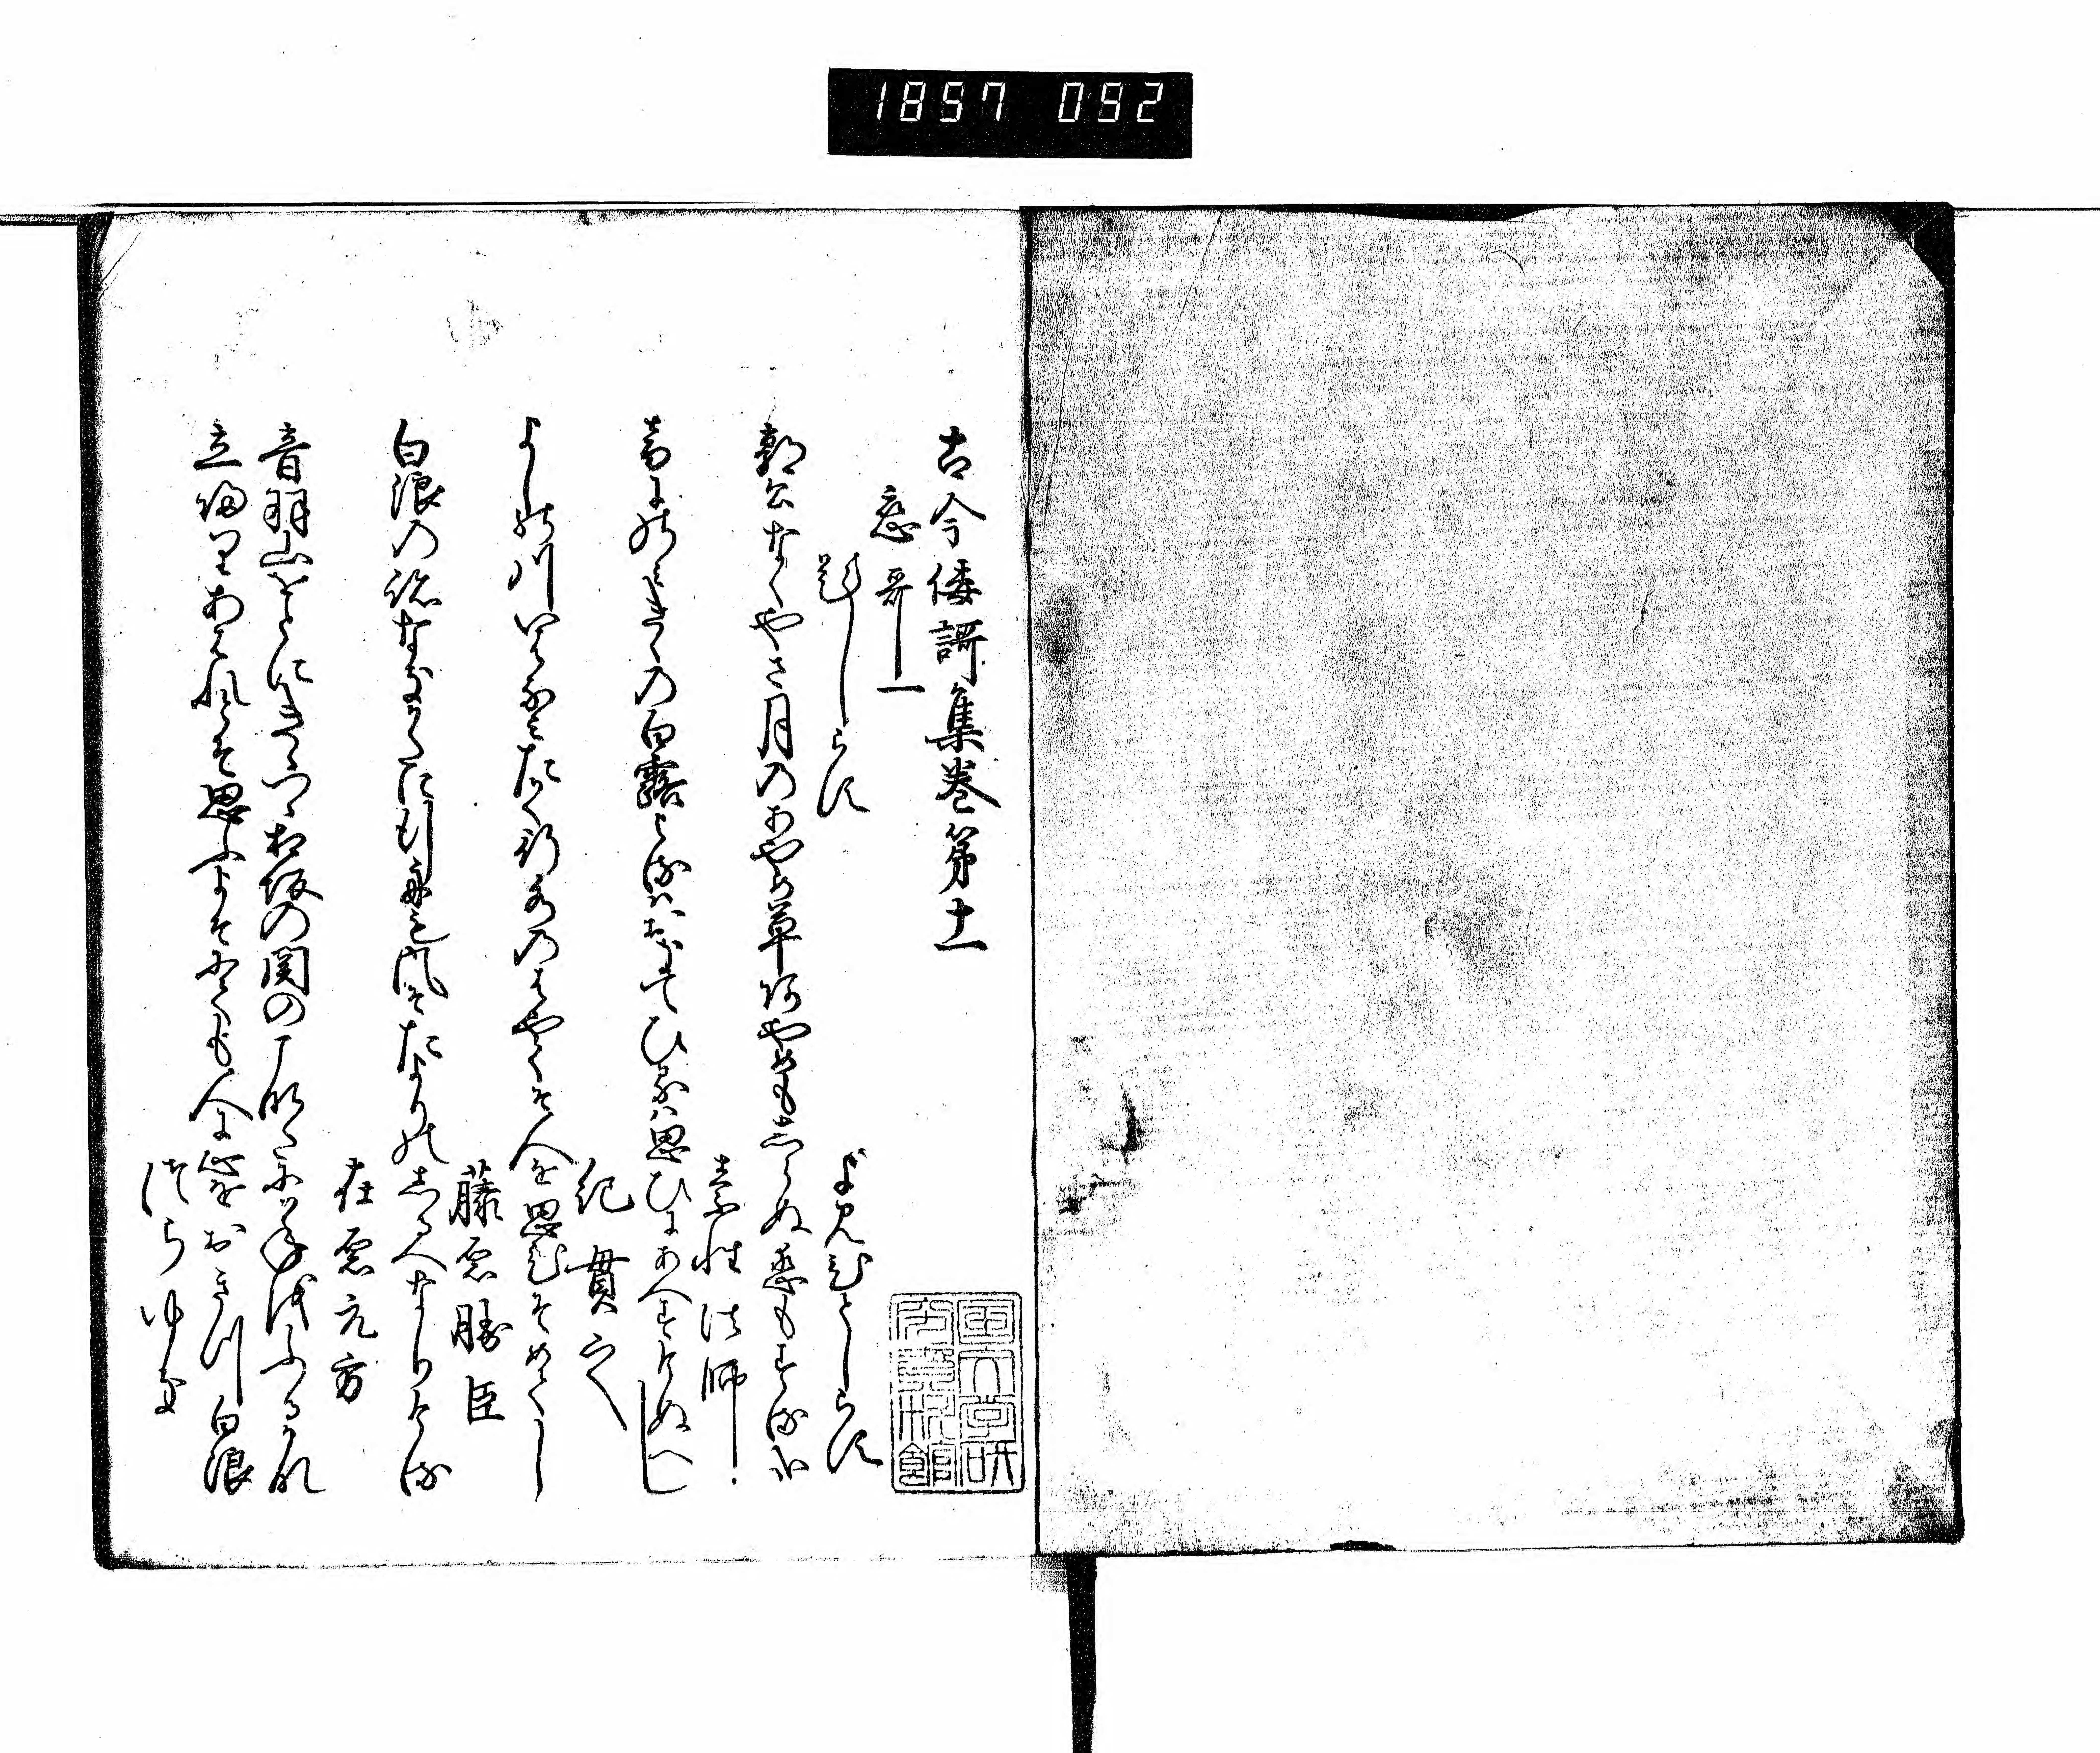 1857 052
古今倭謌集巻第十一
恋哥一
題しらす
よみ人しらす
郭公なくやさ月のあやめ草あやめもしらぬ恋もする哉
素性法師
音にのみきくの白露よるはおきてひるは思ひにあへすけぬへし
紀貫之
よしの川いはなみたかく行水のはやくそ人を思ひそめてし
藤原勝臣
白浪の跡なきかたに行舟も風そたよりのしるへなりける
在原元方
音羽山をとにきゝつゝ相坂の関のこなたに年をふるかな
立帰りあはれとそ思ふよそにても人に心をおきつ白浪
つらゆき